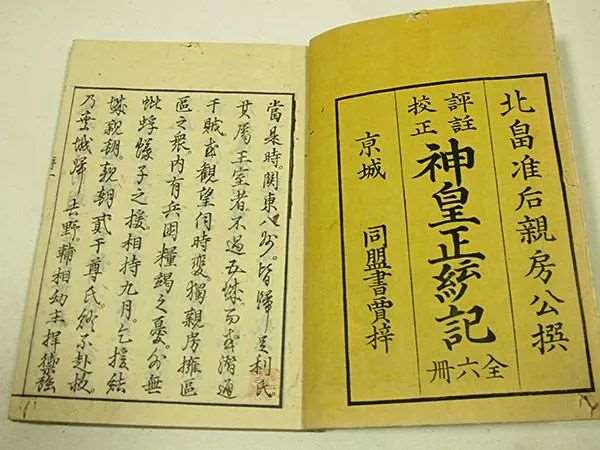 北畠准后親房公撰
評註
校正
神皇正統記
全六冊
京城 同盟書賈梓
當是時。關東八州。皆歸足利氏
其屬王室者不過五城而或潛通
于賊或觀望伺時變。獨親房擁區
區之衆。内有兵困糧竭之憂。外無
蚍蜉蟻子之援相持九月。乞援結
城親朝。親朝貳于尊氏。終不赴救
乃棄城歸吉野輔相幼主捍禦強